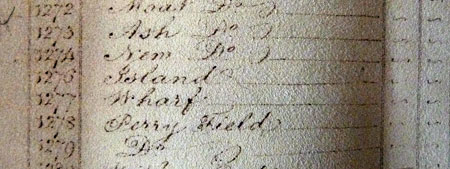 1272 Moat Do
1273 Ash Do
1274 New Do
Island
1277 Wharf
1278 Perry Field
1279 Do